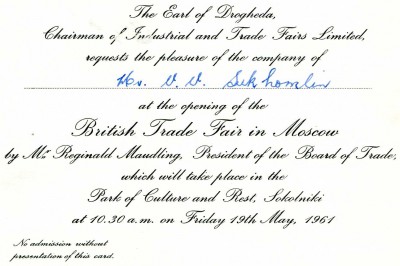 The Earl of Drogheda,
Chairman of Industrial and Trade Fairs Limited,
requests the pleasure of the company of
Mr. V. V. Sukhomlin
at the opening of the
British Trade Fair in Moscow
by Mr. Reginald Maudling, President of the Board of Trade,
which will take place in the
Park of Culture and Rest, Sokolniki
at 10.30 a.m. on Friday 19th May, 1961
No admission without
presentation of this card.